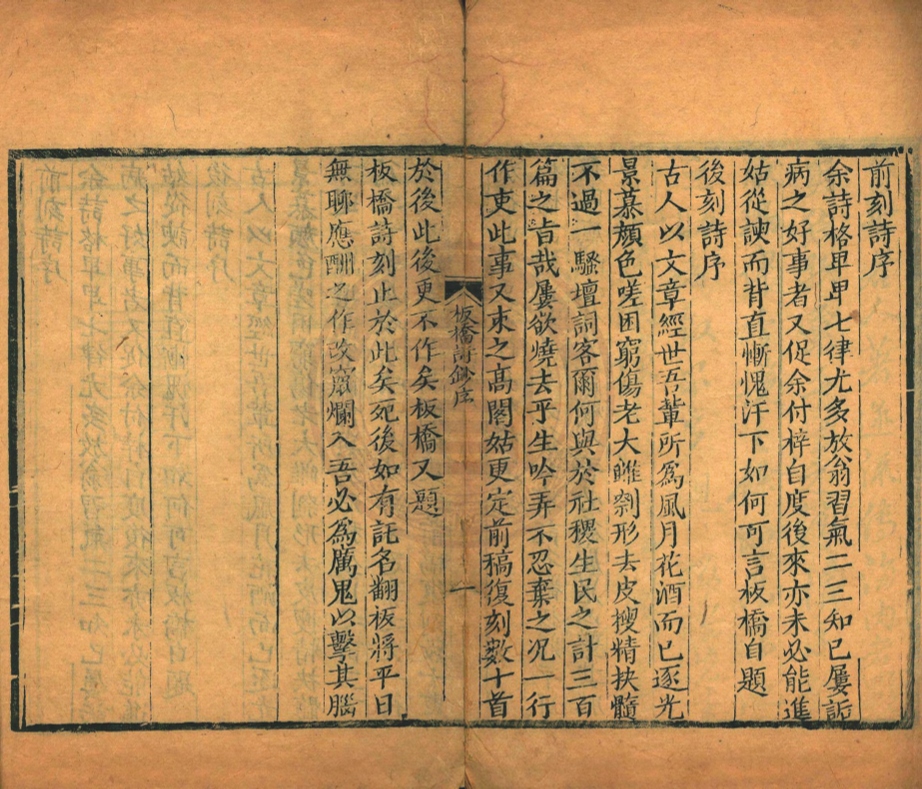 前刻詩序
余詩格卑卑七律尤多放翁習氣二三知己屢詬
病之好事者又促余付梓自度後來亦未必能進
姑從諛而背直慚愧汗下如何可言板橋自題
後刻詩序
古人以文章經世吾輩所為風月花酒而已逐光
景慕顏色嗟困窮傷老大雖剜形去皮搜精抉髓
不過一騷壇詞客爾何與於社稷生民之計三百
篇之旨哉屢欲燒去平生吟弄不忍棄之况一行
作吏此事又束之高閣姑更定前稿復刻數十首
板橋詩鈔序
一
於後此後更不作矣板橋又題
板橋詩刻止於此矣死後如有託名翻板將平日
無聊應酬之作改竄爛入吾必為厲鬼以擊其腦